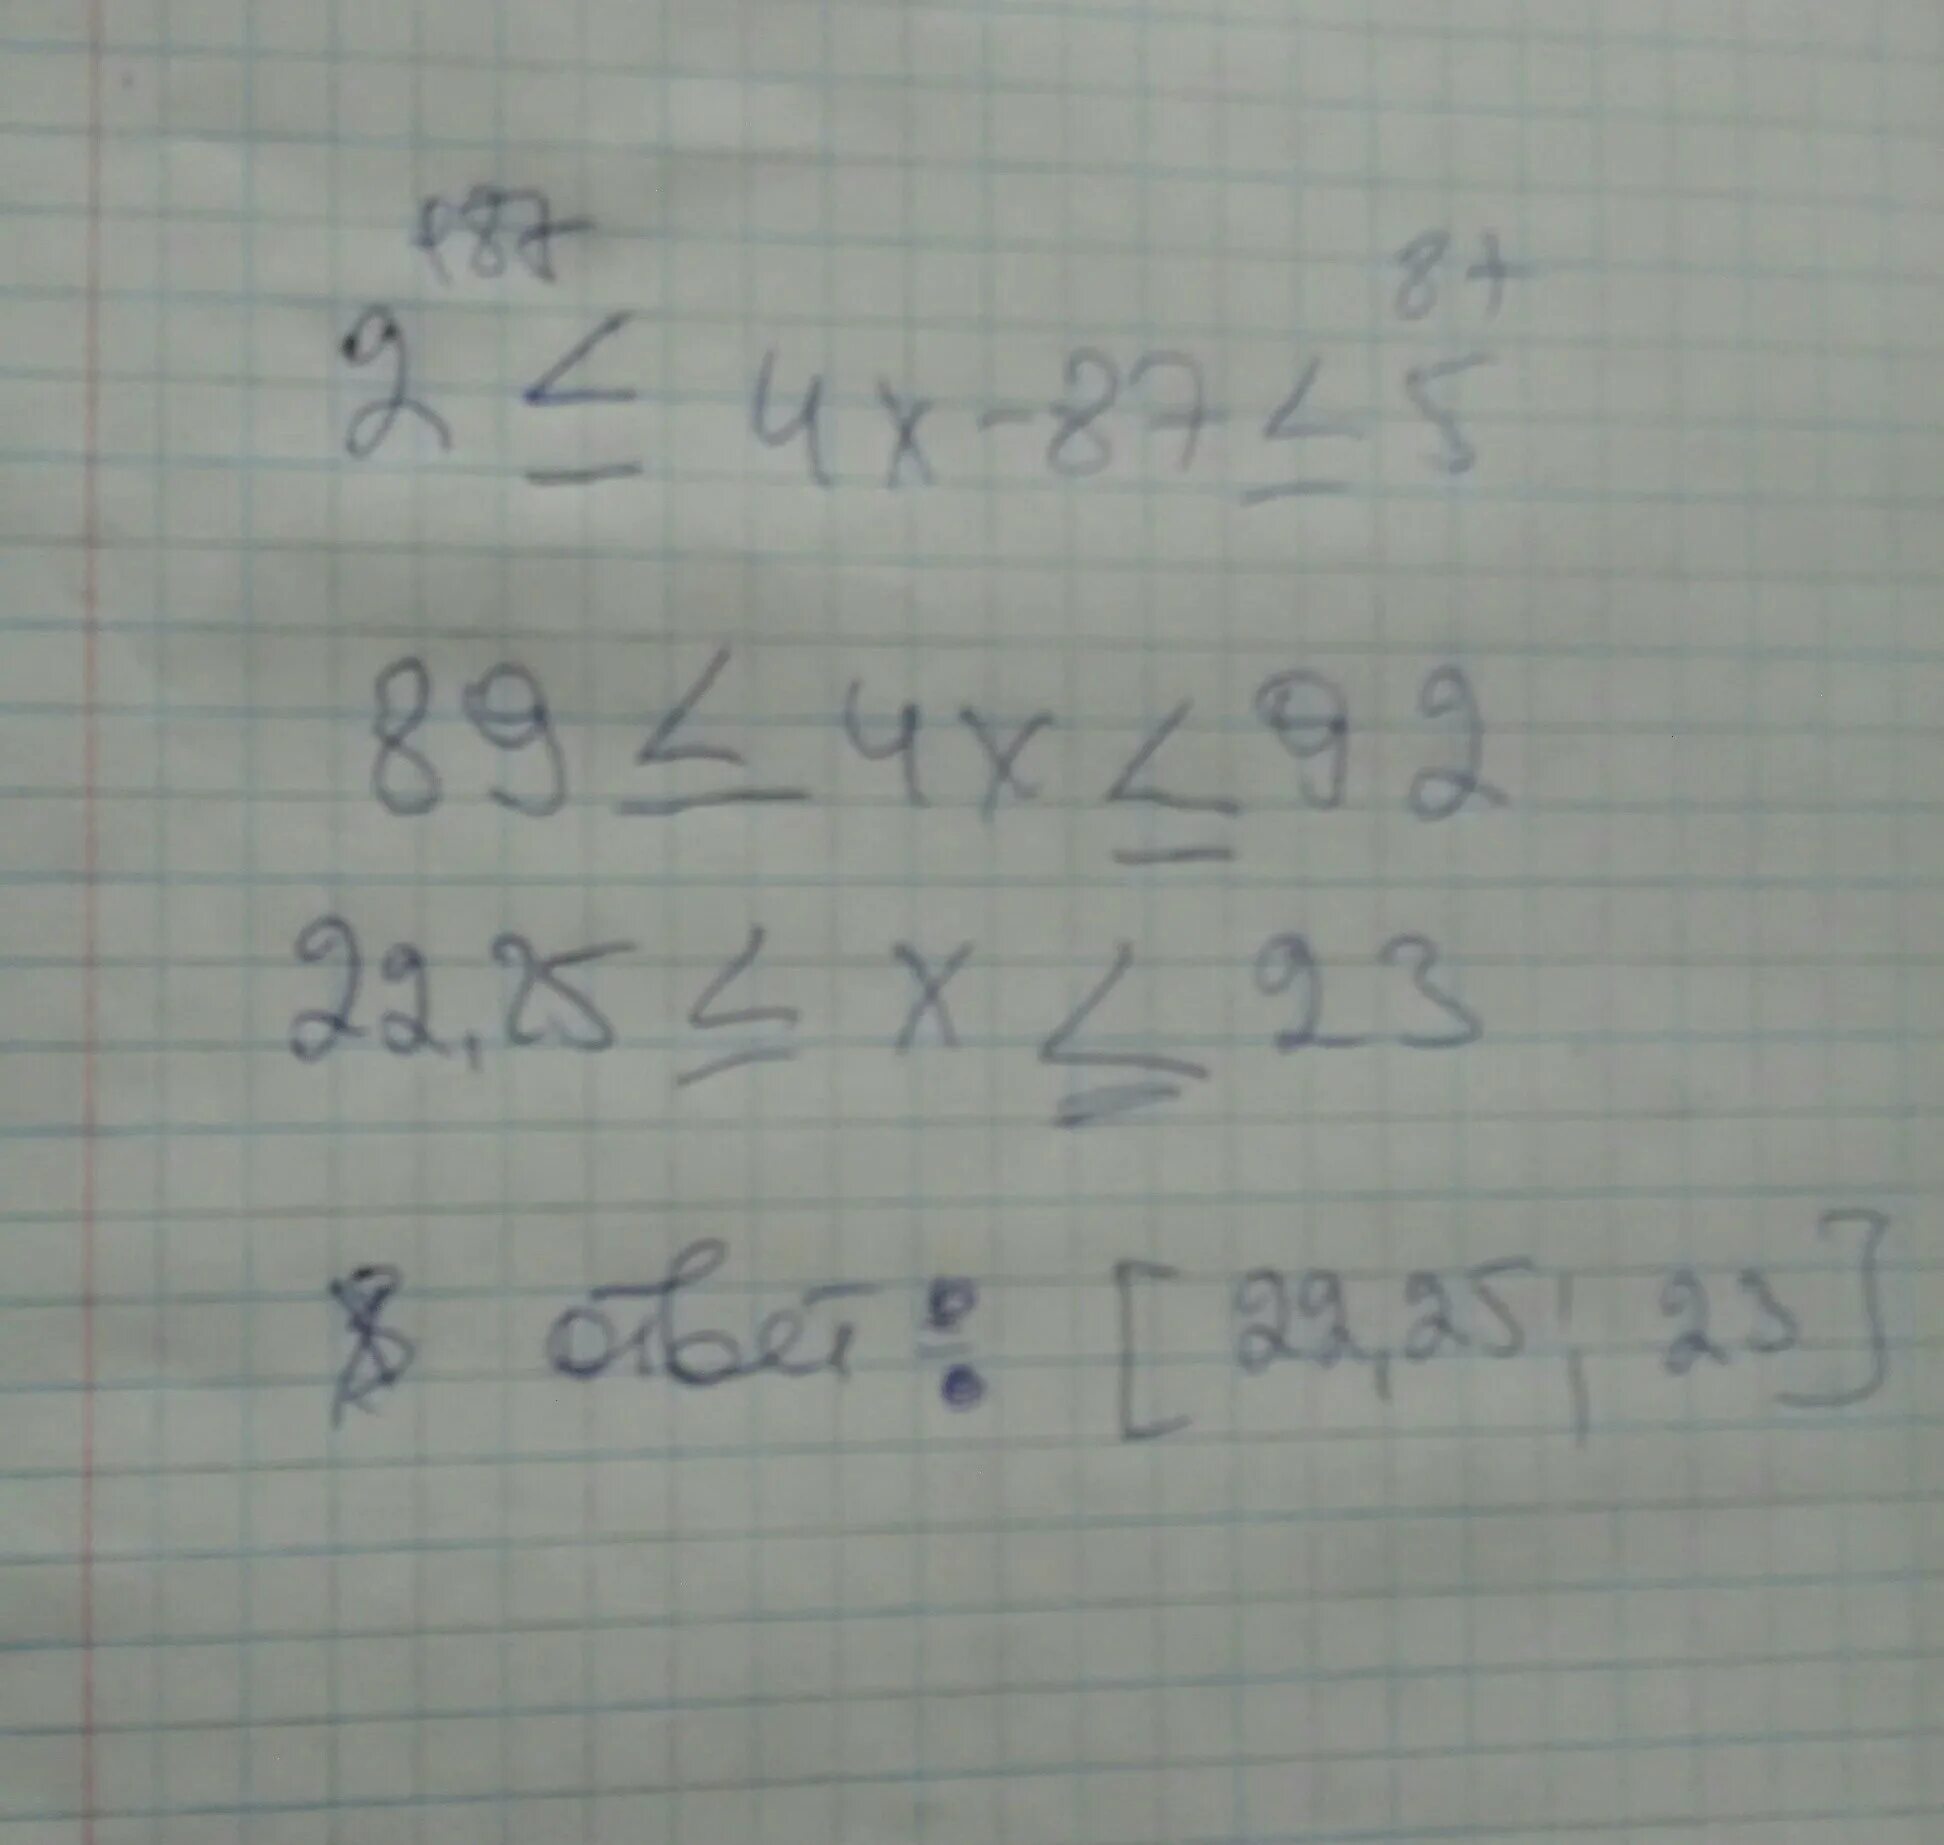 +87 87
2 ≤ 4x - 87 ≤ 5
89 ≤ 4x ≤ 92
22,25 ≤ x ≤ 23
ответ: [22,25; 23]